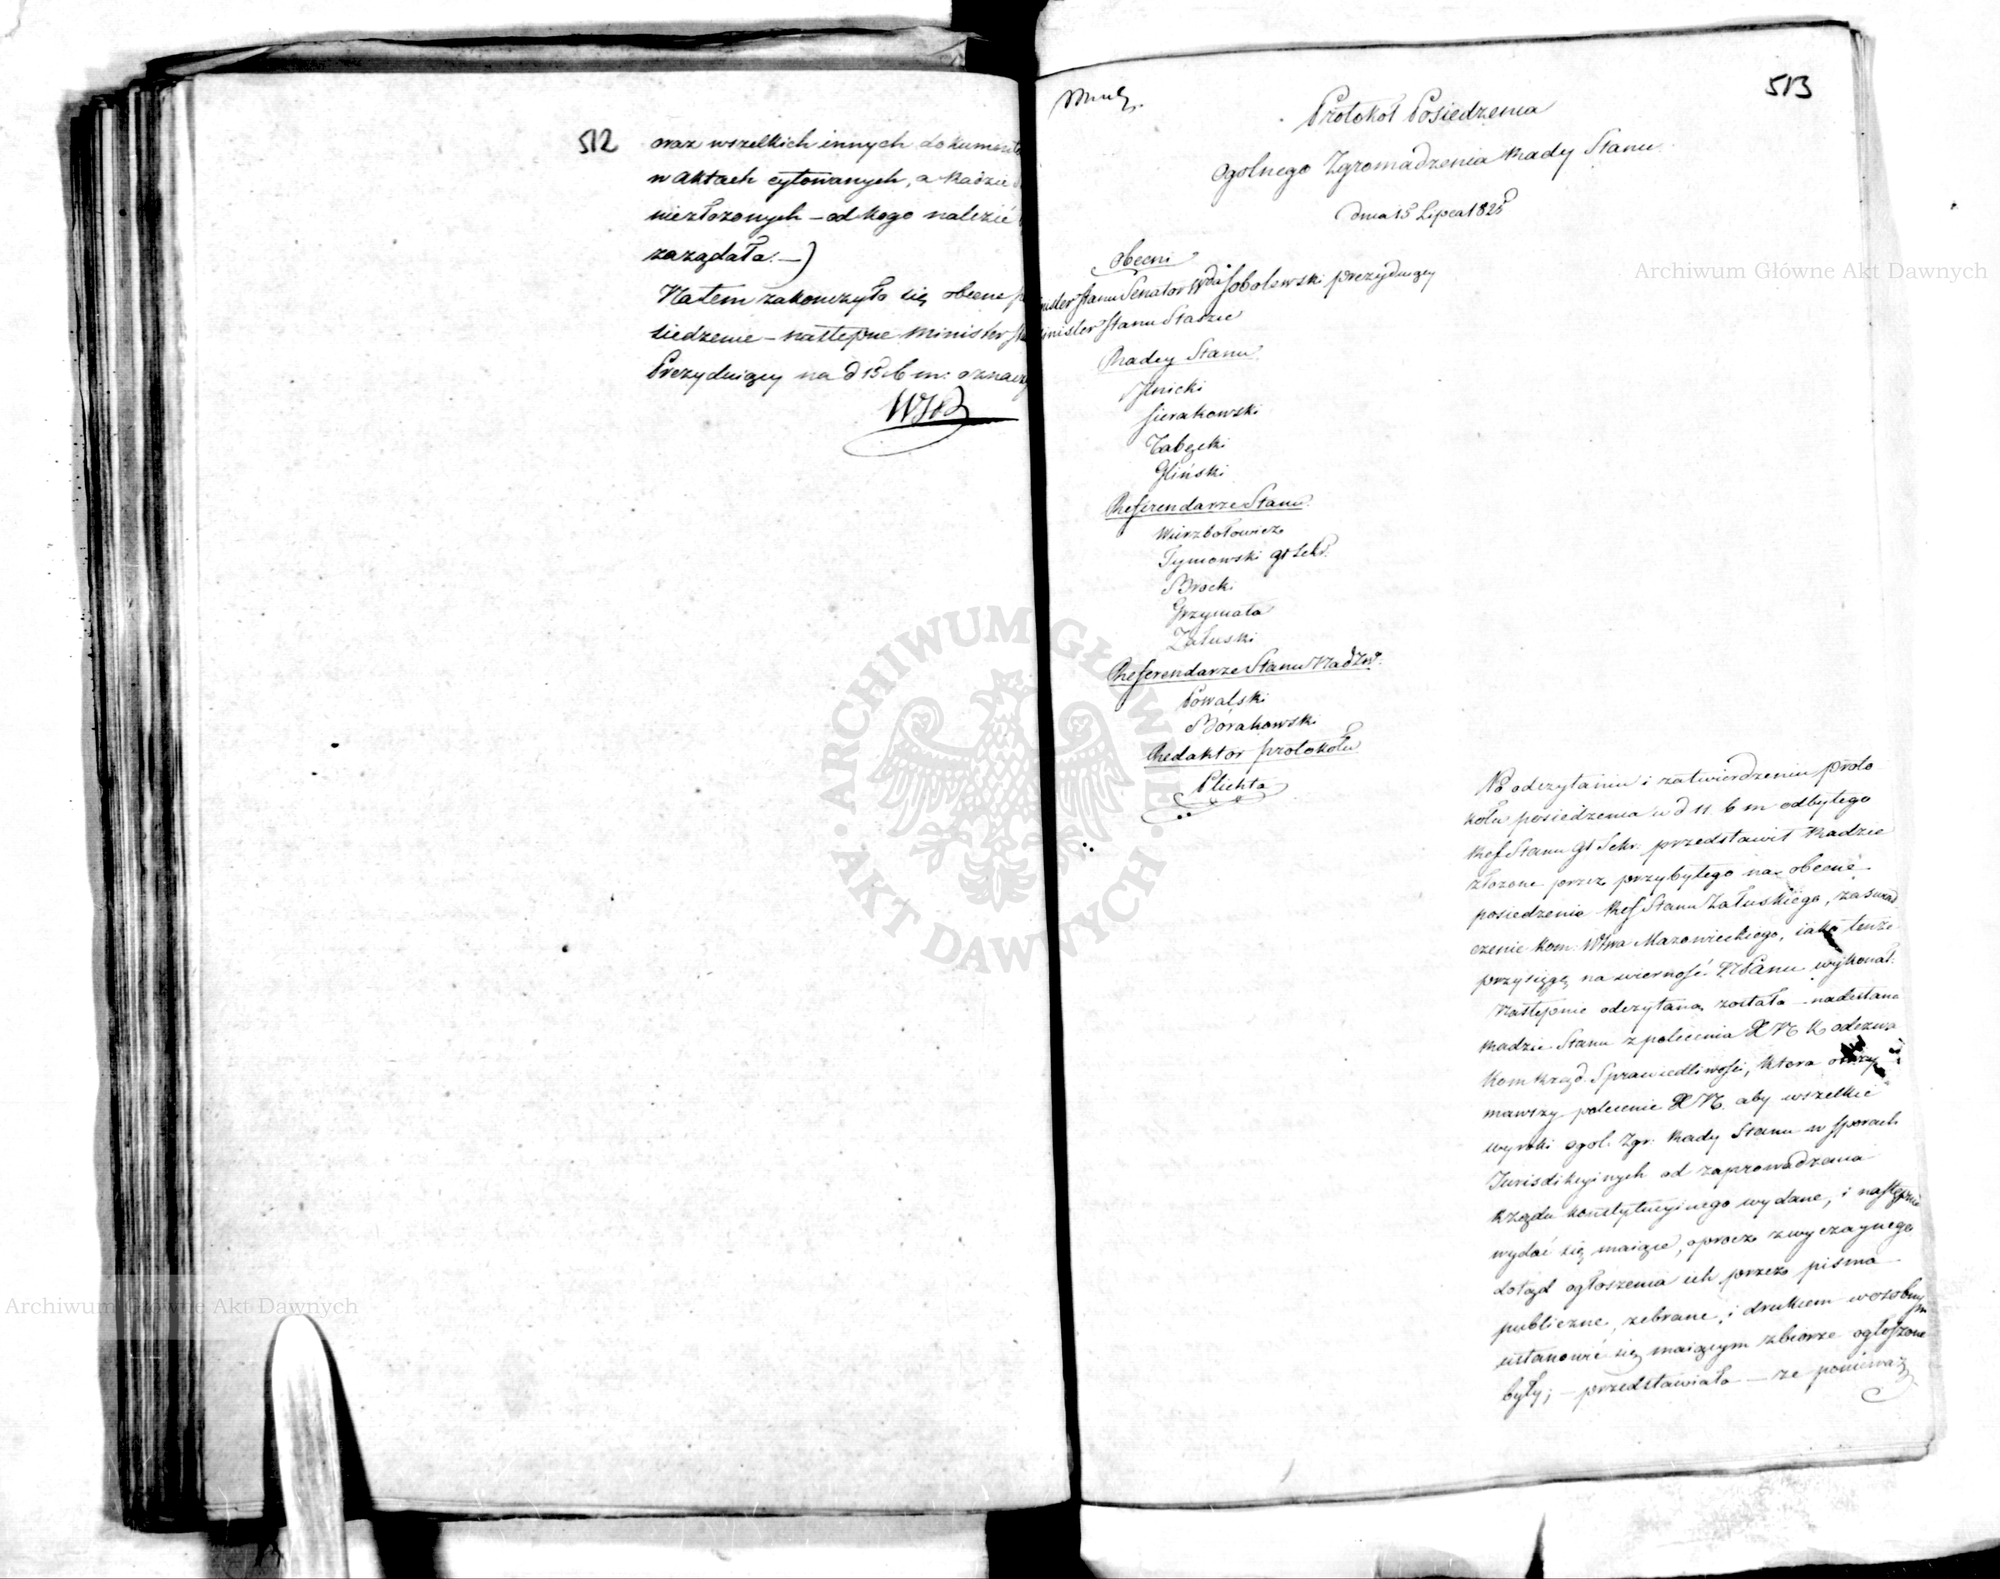 512
oraz wszelkich innych dokumentó
w aktach cytowanych, a Radzie
niezłożonych – od kogo należeć
zarządała. –)
Na tem zakończyło się obecne p
siedzenie – następne Minister
Prezyduiący na d 15 b m: oznaczy
513
Protokół Posiedzenia
Ogolnego Zgromadzenia Rady Stanu.
Dnia 15 Lipca 1825
Obecni
Minister Stanu Senator Wda Sobolewski prezyduiący
Minister Stanu Staszic
Radcy Stanu
Sierakowski
Gliński
Referendarze Stanu
Wierzbołowicz
Tymowski Gł Sekr.
Brocki
Grzymała
Załuski
Referendarze Stanu Nadzw.
Kowalski
Bórakowski
Redaktor protokołu
Plichta
Po odczytaniu i zatwierdzeniu proto
kołu posiedzenia w d 11. b m odbytego
Ref Stanu Gł Sekr: przedstawił Radzie
złożone przez przybyłego na obecne
posiedzenie Ref Stanu Załuskiego, zaświad
czenie Kom: Wtwa Mazowieckiego, iako tenże
przysięgę na wierność N Panu wykonał.
Następnie odczytaną została nadesłana
Radzie Stanu z polecenia X N K odezwa
Kom Rząd. Sprawiedliwości, która otrzy
mawszy polecenie X N. aby wszelkie
wyroki ogól. Zgr. Rady Stanu w sporach
Jurisdikcyinych od zaprowadzenia
Rządu konstytucyinego wydane, i następnie
wydać się maiące, oprócz zwyczaynego
dotąd ogłoszenia ich przez pisma
publiczne, zebrane, i drukiem w osobnym
ustanowić się maiącym zbiorze ogłoszone
były; – przedstawiała – że ponieważ
Archiwum Główne Akt Dawnych
Archiwum Główne Akt Dawnych
ARCHIWUM GŁÓWNE AKT DAWNYCH